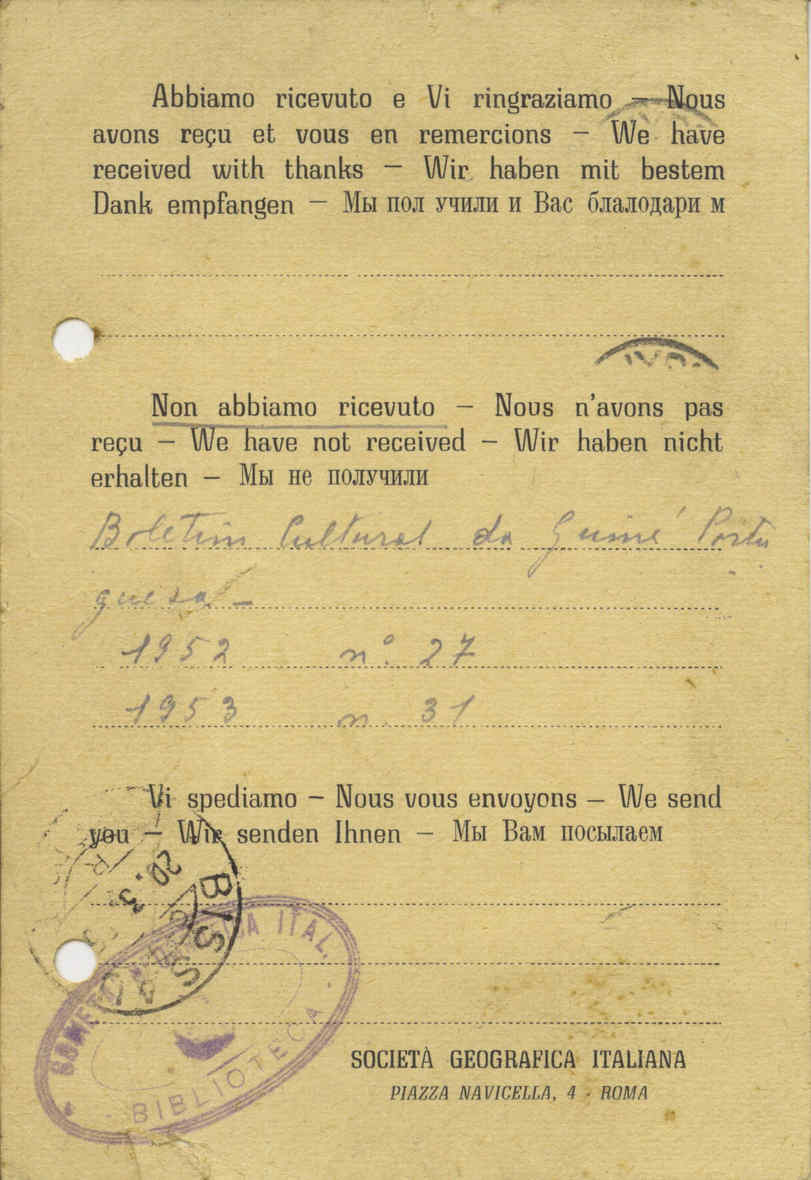 Abbiamo ricevuto e Vi ringraziamo — Nous
avons reçu et vous en remercions — We have
received with thanks — Wir haben mit bestem
Dank empfangen — Мы пол учили и Вас блалодари м
Non abbiamo ricevuto — Nous n'avons pas
reçu — We have not received — Wir haben nicht
erhalten — Мы не получили
Boletim Cultural da Guiné Portu
guesa —
1952 n°. 27
1953 n. 31
Vi spediamo — Nous vous envoyons — We send
you — Wir senden Ihnen — Мы Вам посылаем
20. 3
BISSAU
ITAL.
BIBLIOTECA
SOCIETÀ GEOGRAFICA ITALIANA
PIAZZA NAVICELLA, 4 - ROMA